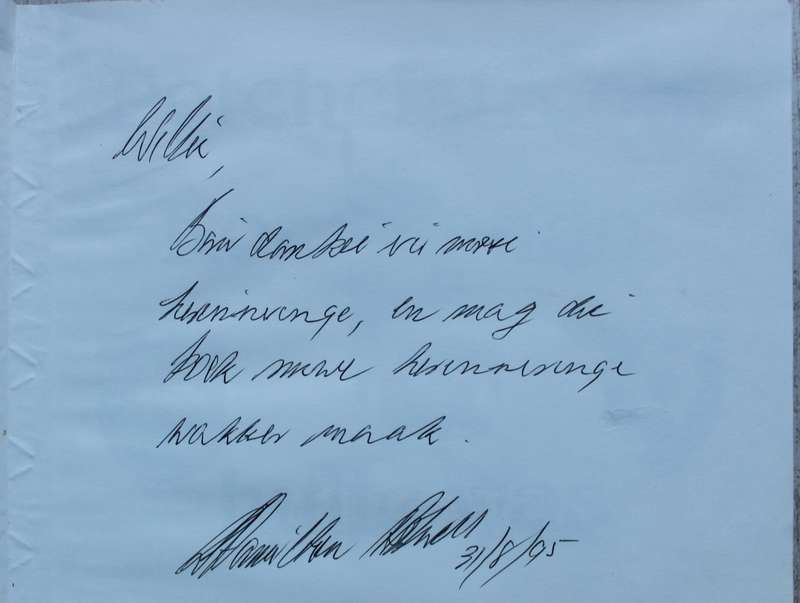 Willie,
Baie dankie vir mooi
herinneringe, en mag die
boek nuwe herinneringe
wakker maak.
Hamilton 31/8/95